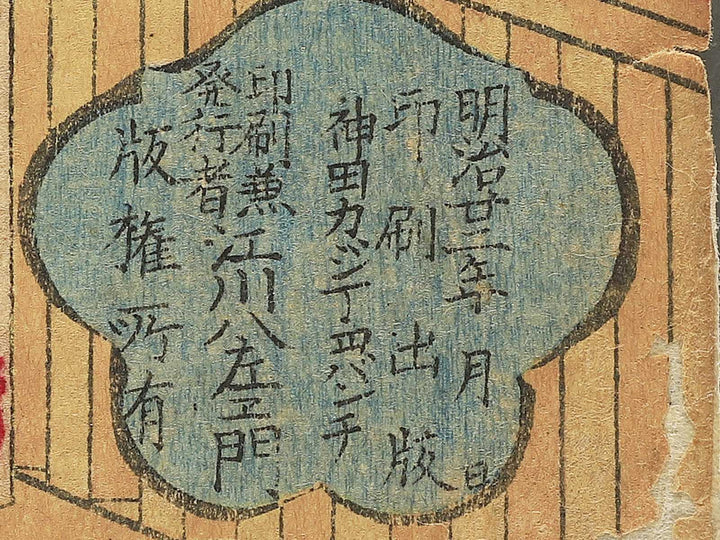 明治廿二年 月 日
印刷出版
神田カジ丁四バンチ
印刷兼
発行者 江川八左エ門
版権所有